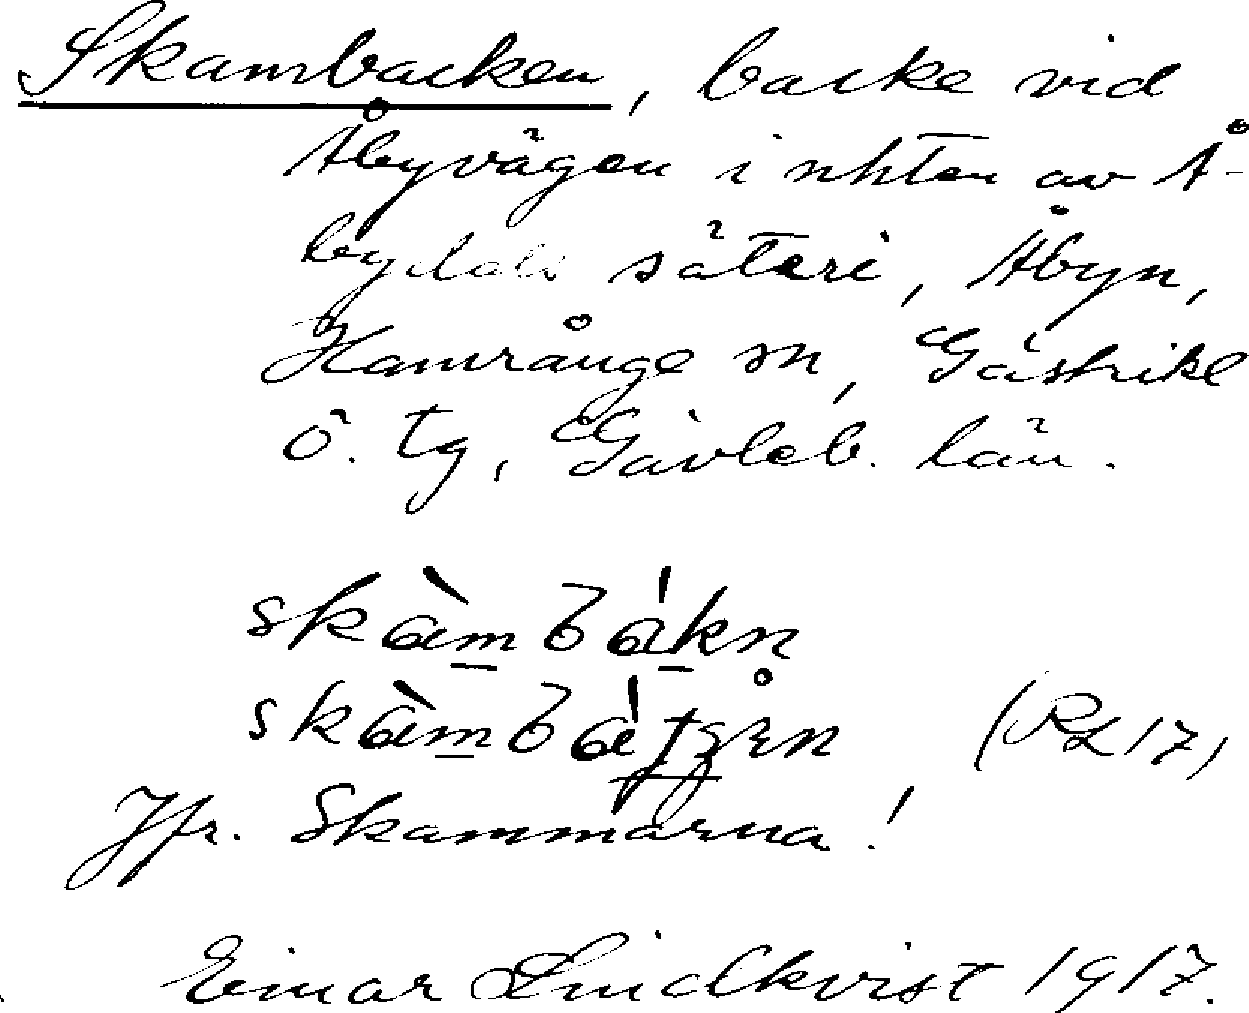 Skambacken, backe vid
Åbyvägen i nhten av Å-
bydals säteri, Åbyn,
Hamrånge sn, Gästrikl
ö. tg, Gävleb. län.
skàmbákn
skàmbá
Jfr. Skammarna!
Einar Lindkvist 1917.